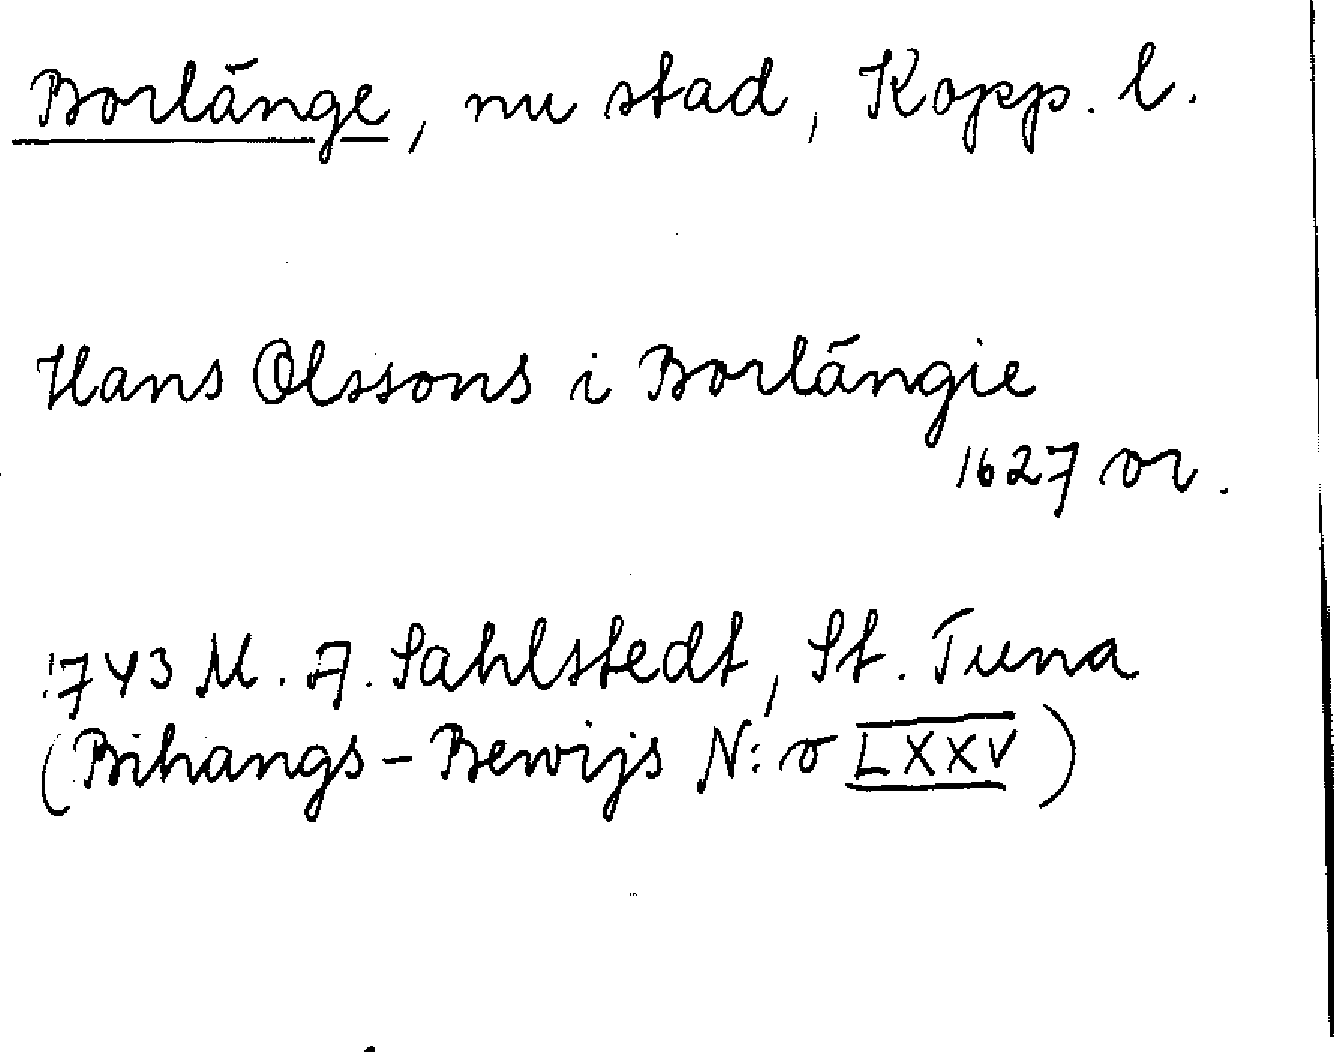 Borlänge, nu stad, Kopp. l.
Hans Olssons i Borlängie
1627 or.
1743 M. A. Sahlstedt, St. Tuna
(Bihangs-Bewijs N:o LXXV)